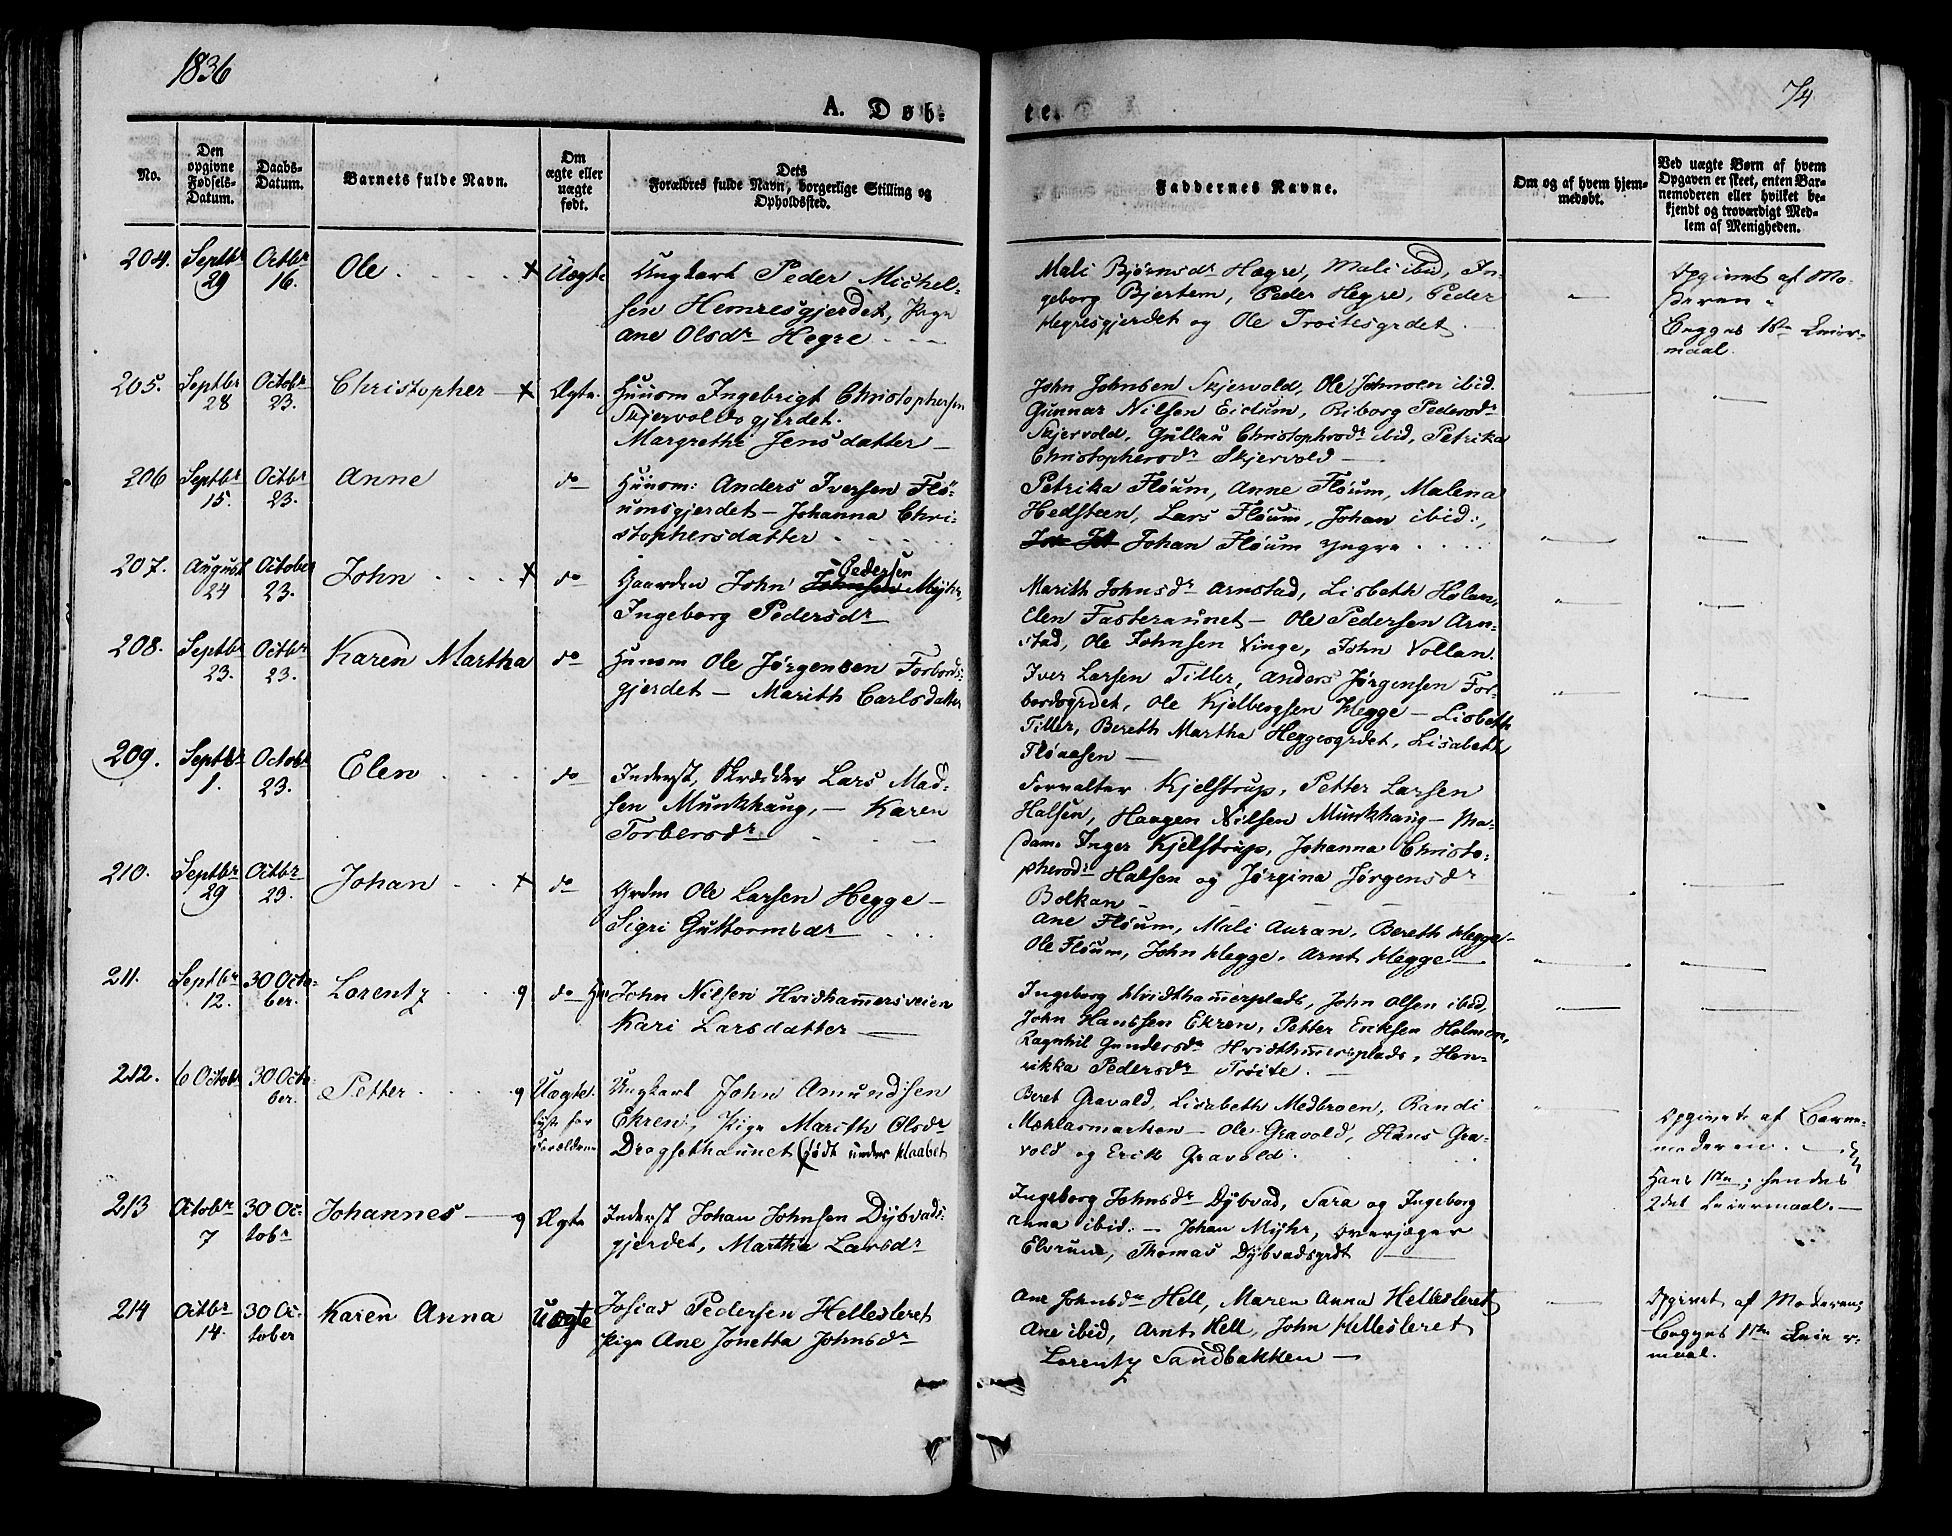 1836
74
A. Døb-
te.
No.
Den opgivne Fødsels-Datum.
Daabs-Datum.
Barnets fulde Navn.
Om ægte eller uægte født.
Dets Forældres fulde Navn, borgerlige Stilling og Opholdssted.
Faddernes Navne.
Om og af hvem hjem-medøbt.
Ved uægte Børn af hvem Opgaven er skeet, enten Bar-nemoderen eller hvilket be-kjendt og troværdigt Med-lem af Menigheden.
204. Septbr 29 Octbr 16. Ole Uægte
Ungkarl Peder Michel-
sen Hemresgjerdet, Pige
Ane Olsdr Hegre
Mali Bjørnsdr Hægre, Mali ibid, In-
geborg Bjertem, Peder Hegre, Peder
Hegresgjerdet og Ole Troitesgrdet.
Opgivet af Mo-
deren
Begges 1ste Leier-
maal.
205. Septbr 28 Octobr 23. Christopher Ægte.
Huusm Ingebrigt Christophersen
Skjervoldsgjerdet.
Margrethe Jensdatter
John Johnsen Skjervold, Ole Johnsen ibid.
Gunnar Nilsen Eidum, Riborg Pedersdr
Skjervold, Gullau Christophrsdr ibid, Petrika
Christophersdr Skjervold
206 Septbr 15. Octbr 23. Anne do
Huusm: Anders Iversen Flø-
umsgjerdet – Johanna Chri-
stophersdatter
Petrika Fløum, Anne Fløum, Malena
Hedstæn, Lars Fløum, Johan ibid:,
Johan Fløum yngre
207. August 24 October 23. John do
Gaarden John Johnsen Pedersen Myhr,
Ingeborg Pedersdr
Marith Johnsdr Arnstad, Lisbeth Holan,
Elen Fasteraunet – Ole Pedersen Arn-
stad, Ole Johnsen Vinge, John Vollan.
208. Septbr 23. Octbr 23. Karen Martha do
Huusm Ole Jørgensen Forbords-
gjerdet – Marith Carlsdatter
Iver Larsen Tiller, Anders Jørgensen For-
bordsgrdet, Ole Kjelbergsen Hegge – Lisbeth
Tiller, Bereth Martha Heggesgrdet, Lisabeth
Fløaasen
209. Septbr 1. Octobr 23. Elen do
Inderst, Skrædder Lars Mad-
sen Munkhaug, – Karen
Torbersdr
Forvalter Kjelstrup, Petter Larsen
Halsen, Haagen Nilsen Munkhaug – Ma-
dam Inger Kjelstrup, Johanna Christo-
phersdr Halsen og Jørgina Jørgensdr
Bolkan
210. Septbr 29 Octbr 23. Johan do
Grdm Ole Larsen Hegge –
Sigri Guttormsdr
Ane Fløum, Mali Auran, Bereth Hegge –
Ole Fløum, John Hegge, Arnt Hegge
211. Septbr 12. 30 Octo-
ber. Lorentz do
Hm John Nilsen Hvidhamersveien
Kari Larsdatter
Ingeborg Hvidthamerplads, John Olsen ibid,
John Hanssen Ekren, Petter Eriksen Holmen,
Ragnhil Gundersdr Hvidthmersplads, Hen-
rikka Pedersdr Trøite.
212. 6 Octobr 30 Octo-
ber. Petter Uægte
Ungkarl John Amundsen
Ekren, Pige Marith Olsdr
Drogsethaunet (født under Haabet
Beret Gravald, Lisabeth Medbroen, Randi
Mæhlasmarken – Ole Gravold, Hans Gra-
vold og Erik Gravold.
Opgivet af Barne-
moderen.
Hans 1ste, hendes
2det Leiermaal.
213 Octobr 7 30 Oc-
tobr Johannes Ægte
Inderst Johan Johnsen Dybvads-
gjerdet, Martha Larsdr
Ingeborg Johnsdr Dybvad, Sara og Ingeborg
Anna ibid: – Johan Myhr, Overjæger
Elverum, Thomas Dybvadsgrdt
214 Octbr 14. 30 Oc-
tober Karen Anna Uægte
Josias Pedersen Hellesleret
Pige Ane Jonetta Johnsdr
Ane Johnsdr Hell, Maren Anna Hellesleret,
Ane ibid, Arnt Hell, John Hellesleret
Lorentz Sandbakken
Opgivet af Moderen;
Begges 1ste Leier-
maal.